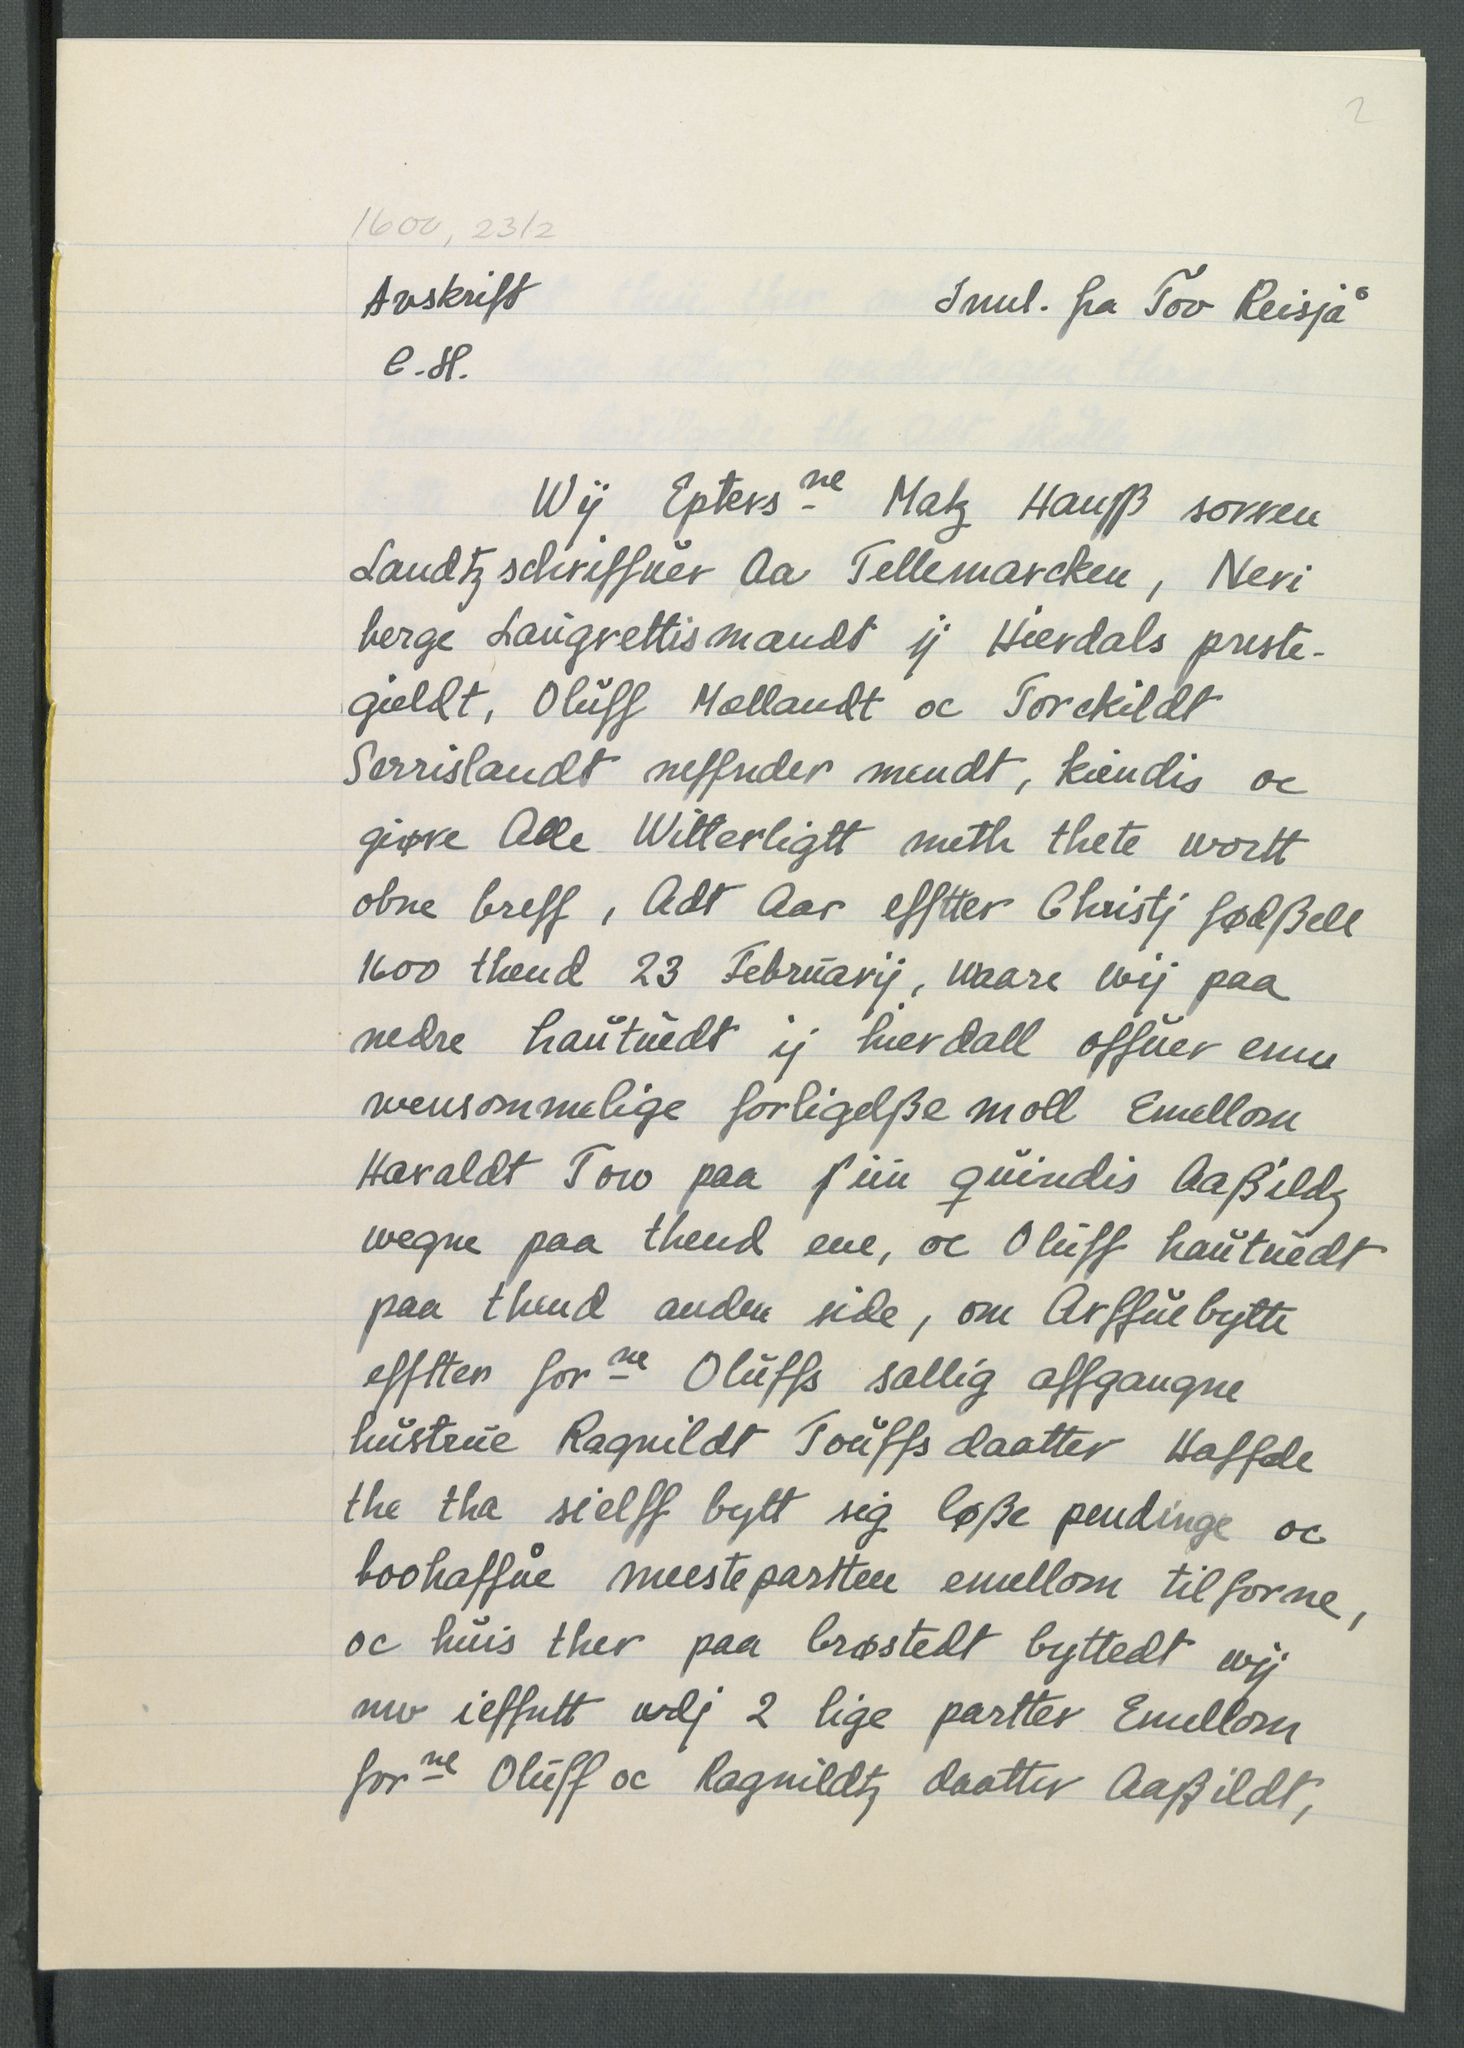 2
1600, 23/2
Avskrift Innl. fra Tov Reisjå
C.H.
Wij Epters ne Matz Hanß sorren
Landtzschriffuer Aa Tellemarcken, Neri
berge Laugrettismandt ij Hierdals preste-
gieldt, Oluff Mællandt oc Torckildt
Serrislandt neffnder mendt, kiendis oc
giøre Alle Witterligtt meth thete wortt
obne breff, Adt Aar efftter Christj fødßell
1600 thend 23 Februarij, waare wij paa
nedre hautuedt ij hierdall offuer enn
wensommelige forligelße moll Emellom
Haraldt Tow paa sin quindis Aaßildz
wegne paa thend ene, oc Oluff hautuedt
paa thend anden side, om Arffuebytte
efftter for ne Oluffs sallig affgangne
hustrue Ragnildt Touffs daatter Haffde
the tha sielff bytt sig løße pendinge oc
boohaffue meestepartten emellom tilforne,
oc huis ther paa brøstedt byttedt wij
nw ieffntt vdj 2 lige partter Emellom
for ne Oluff oc Ragnildtz daatter Aaßildt,